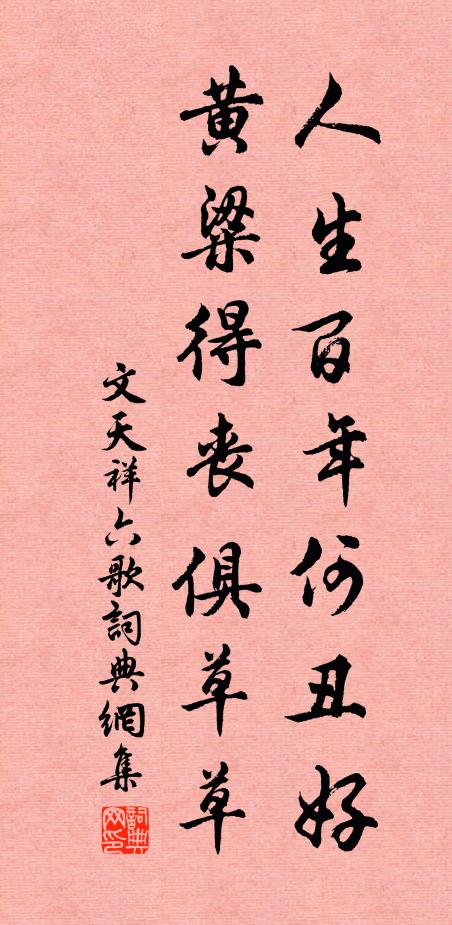 人生百年何丑好
黄粱得丧俱草草
文天祥六歌詞典網集
詞典网印